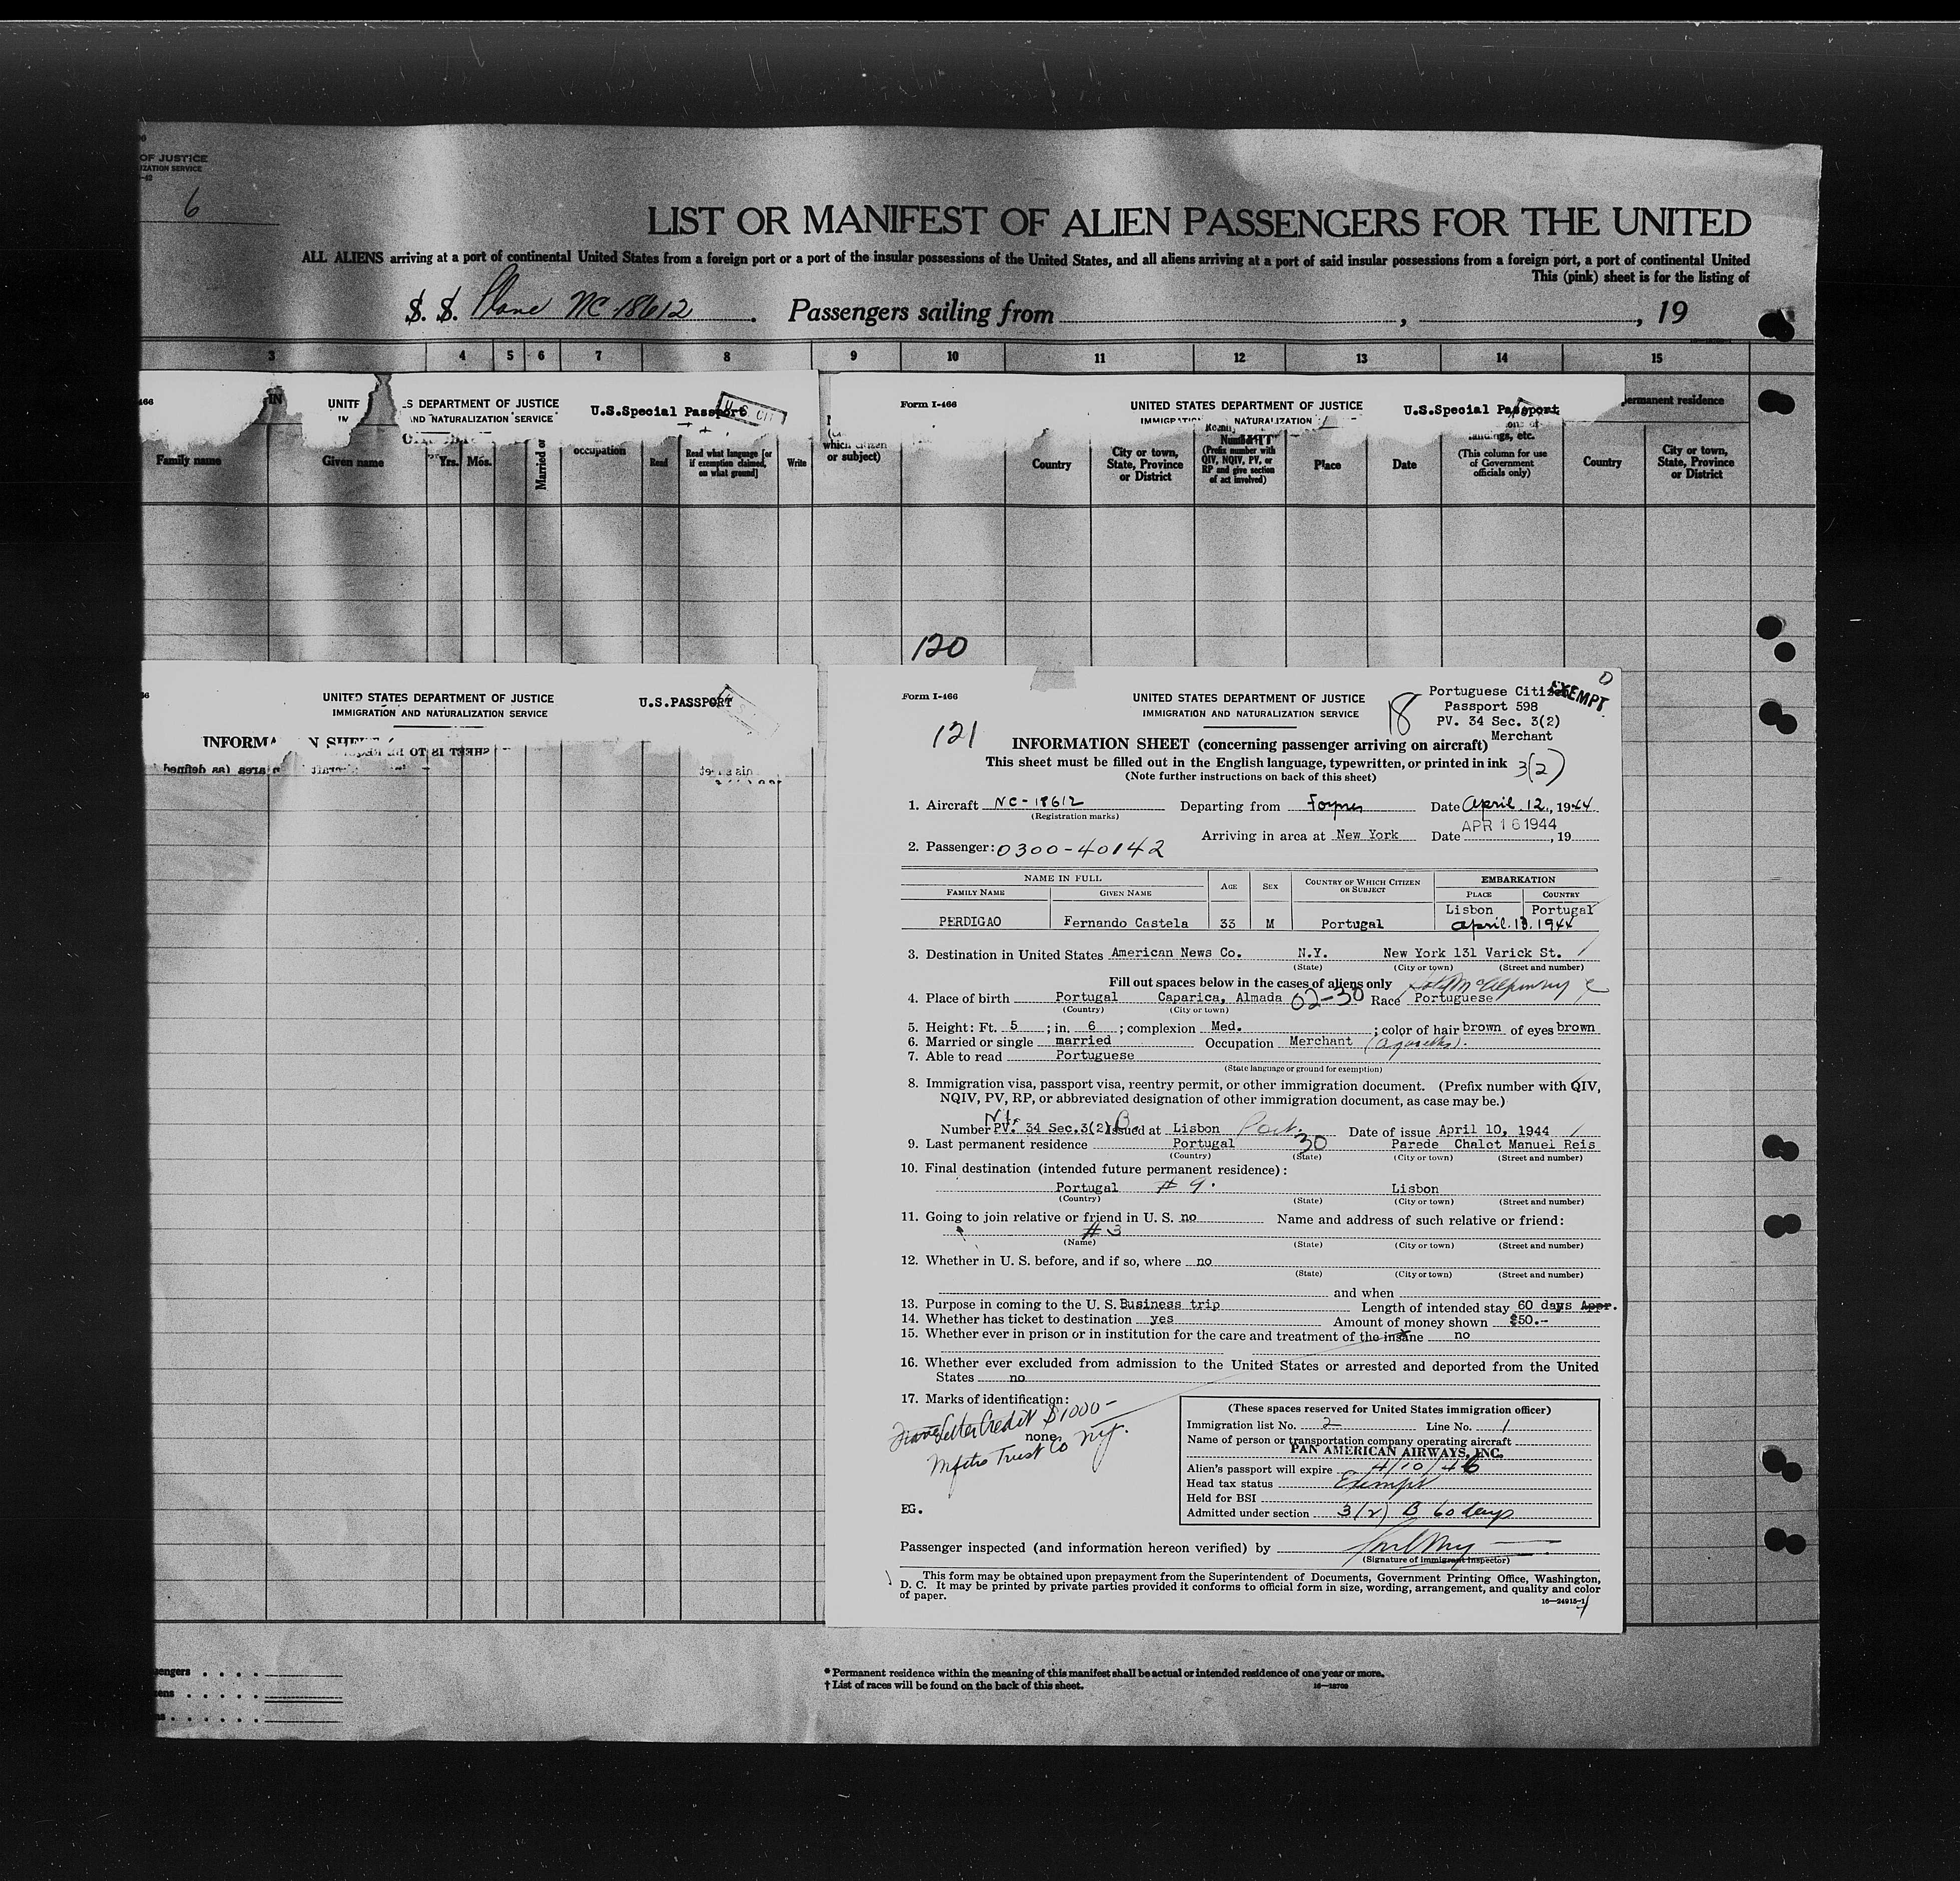 OF JUSTICE
IZATION SERVICE
6
LIST OR MANIFEST OF ALIEN PASSENGERS FOR THE UNITED
ALL ALIENS arriving at a port of continental United States from a foreign port or a port of the insular possessions of the United States, and all aliens arriving at a port of said insular possessions from a foreign port, a port of continental United
This (pink) sheet is for the listing of
S. S. Plane NC-18612. Passengers sailing from , , 19
3 4 5 6 7 8 9 10 11 12 13 14 15
466 UNITE S DEPARTMENT OF JUSTICE U.S.Special Passport
AND NATURALIZATION SERVICE
Form I-466 UNITED STATES DEPARTMENT OF JUSTICE U.S.Special Passport
NATURALIZATION
ermanent residence
Family name Given name Yrs. Mos. Married or occupation Read Read what language [or if exemption claimed, on what ground] Write which citizen or subject) Country City or town, State, Province or District (Prefix number with QIV, NQIV, PV, or RP and give section of act involved) Place Date (This column for use of Government officials only) Country City or town, State, Province or District
120
UNITED STATES DEPARTMENT OF JUSTICE U.S.PASSPORT
IMMIGRATION AND NATURALIZATION SERVICE
Form I-466 UNITED STATES DEPARTMENT OF JUSTICE
IMMIGRATION AND NATURALIZATION SERVICE
18
Portuguese Citizen
EXEMPT
Passport 598
PV. 34 Sec. 3(2)
Merchant
121
INFORMATION SHEET (concerning passenger arriving on aircraft)
This sheet must be filled out in the English language, typewritten, or printed in ink 3(2)
(Note further instructions on back of this sheet)
1. Aircraft NC-18612 Departing from Foynes Date April 12, 1944
(Registration marks)
Arriving in area at New York Date APR 16 1944, 19
2. Passenger: 0300-40142
NAME IN FULL AGE SEX COUNTRY OF WHICH CITIZEN OR SUBJECT EMBARKATION
FAMILY NAME GIVEN NAME PLACE COUNTRY
PERDIGAO Fernando Castela 33 M Portugal Lisbon Portugal
April.13.1944
3. Destination in United States American News Co. N.Y. New York 131 Varick St.
(State) (City or town) (Street and number)
Fill out spaces below in the cases of aliens only
4. Place of birth Portugal Caparica, Almada 02-30 Race Portuguese
(Country) (City or town)
5. Height: Ft. 5; in. 6; complexion Med.; color of hair brown of eyes brown
6. Married or single married Occupation Merchant
7. Able to read Portuguese
(State language or ground for exemption)
8. Immigration visa, passport visa, reentry permit, or other immigration document. (Prefix number with QIV,
NQIV, PV, RP, or abbreviated designation of other immigration document, as case may be.)
Number PV. 34 Sec.3(2) B. Issued at Lisbon Port. Date of issue April 10, 1944
9. Last permanent residence Portugal 30 Parede Chalet Manuel Reis
(Country) (State) (City or town) (Street and number)
10. Final destination (intended future permanent residence):
Portugal # 9. Lisbon
(Country) (State) (City or town) (Street and number)
11. Going to join relative or friend in U. S. no Name and address of such relative or friend:
# 3
(Name) (State) (City or town) (Street and number)
12. Whether in U. S. before, and if so, where no
(State) (City or town) (Street and number)
and when
13. Purpose in coming to the U. S. Business trip Length of intended stay 60 days Appr.
14. Whether has ticket to destination yes Amount of money shown $50.-
15. Whether ever in prison or in institution for the care and treatment of the insane no
16. Whether ever excluded from admission to the United States or arrested and deported from the United
States no
17. Marks of identification:
Letter Credit $1000-
none
Trust Co NY.
EG.
(These spaces reserved for United States immigration officer)
Immigration list No. 2 Line No. 1
Name of person or transportation company operating aircraft
PAN AMERICAN AIRWAYS, INC.
Alien's passport will expire 4/10/46
Head tax status Exempt
Held for BSI
Admitted under section 3(2) B 60 days
Passenger inspected (and information hereon verified) by
(Signature of immigrant inspector)
This form may be obtained upon prepayment from the Superintendent of Documents, Government Printing Office, Washington,
D. C. It may be printed by private parties provided it conforms to official form in size, wording, arrangement, and quality and color
of paper.
16—24915-1
engers
* Permanent residence within the meaning of this manifest shall be actual or intended residence of one year or more.
† List of races will be found on the back of this sheet.